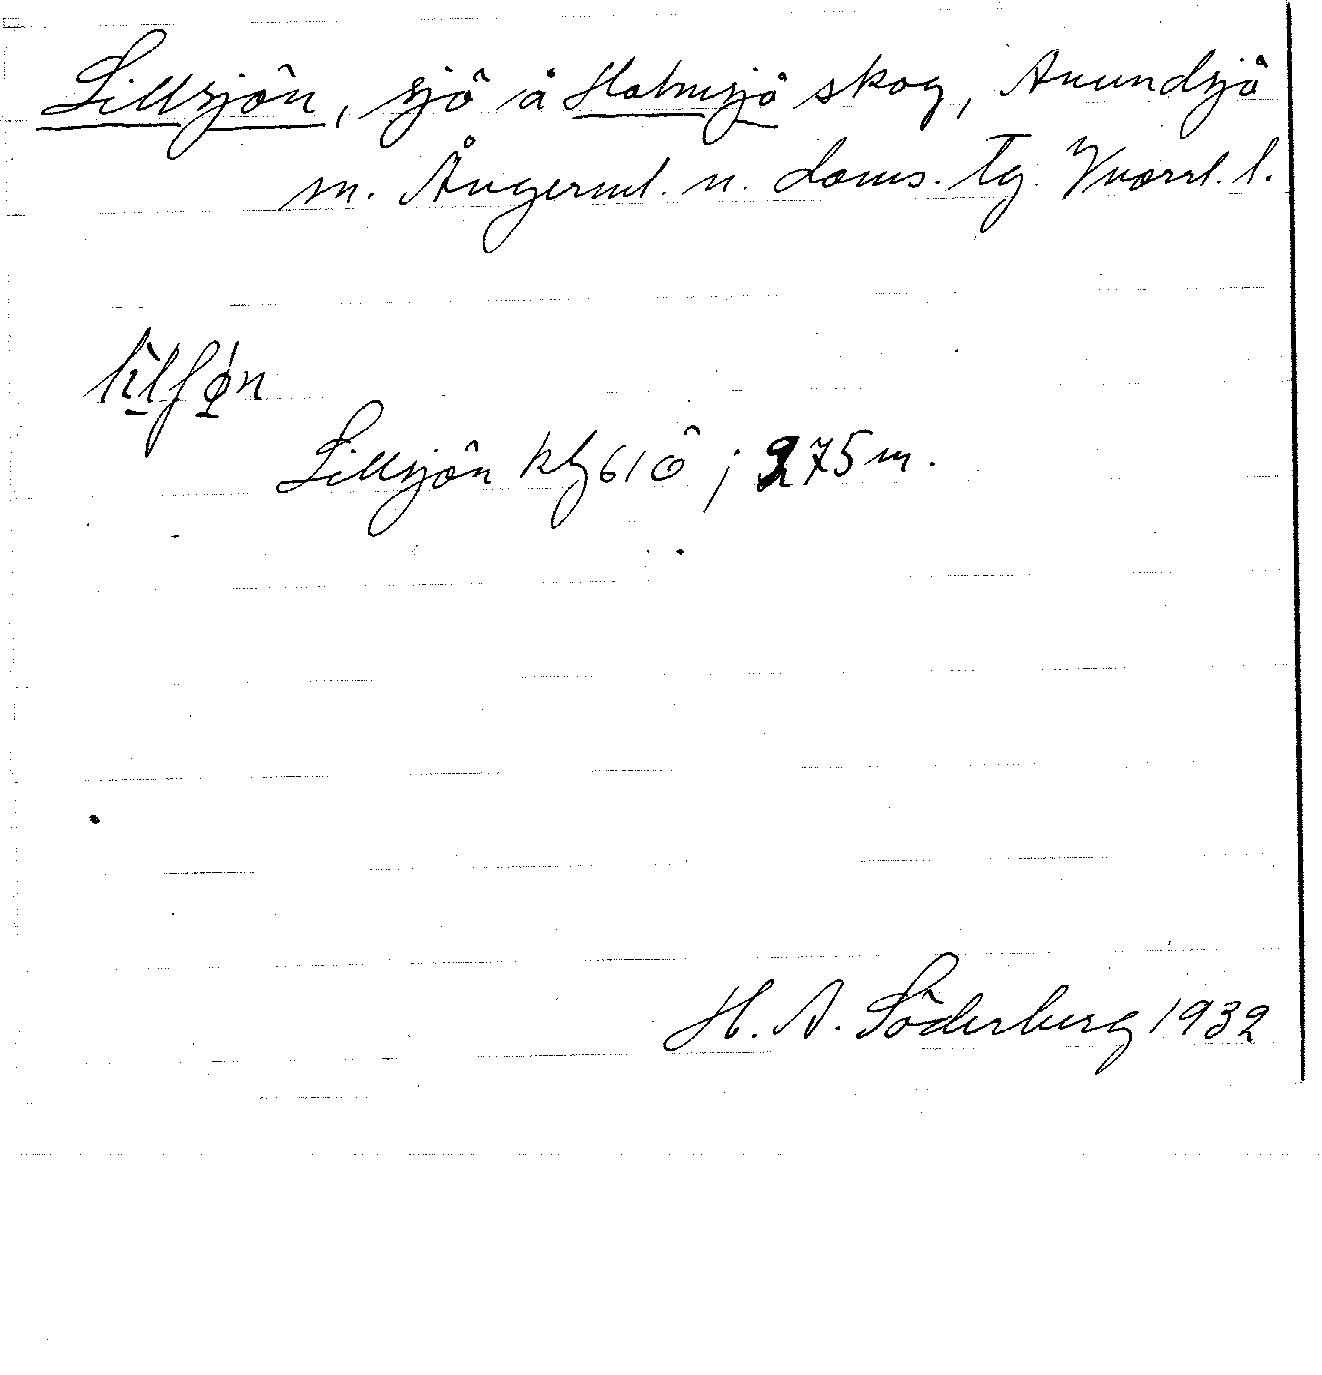 Lillsjön, sjö å Holmsjö skog, Anundsjö
sn. Ångerml. n. doms. tg. Vnorrl. l.
Lillsjön kbl 61 ö ; 275 m.
H. A. Söderberg 1932